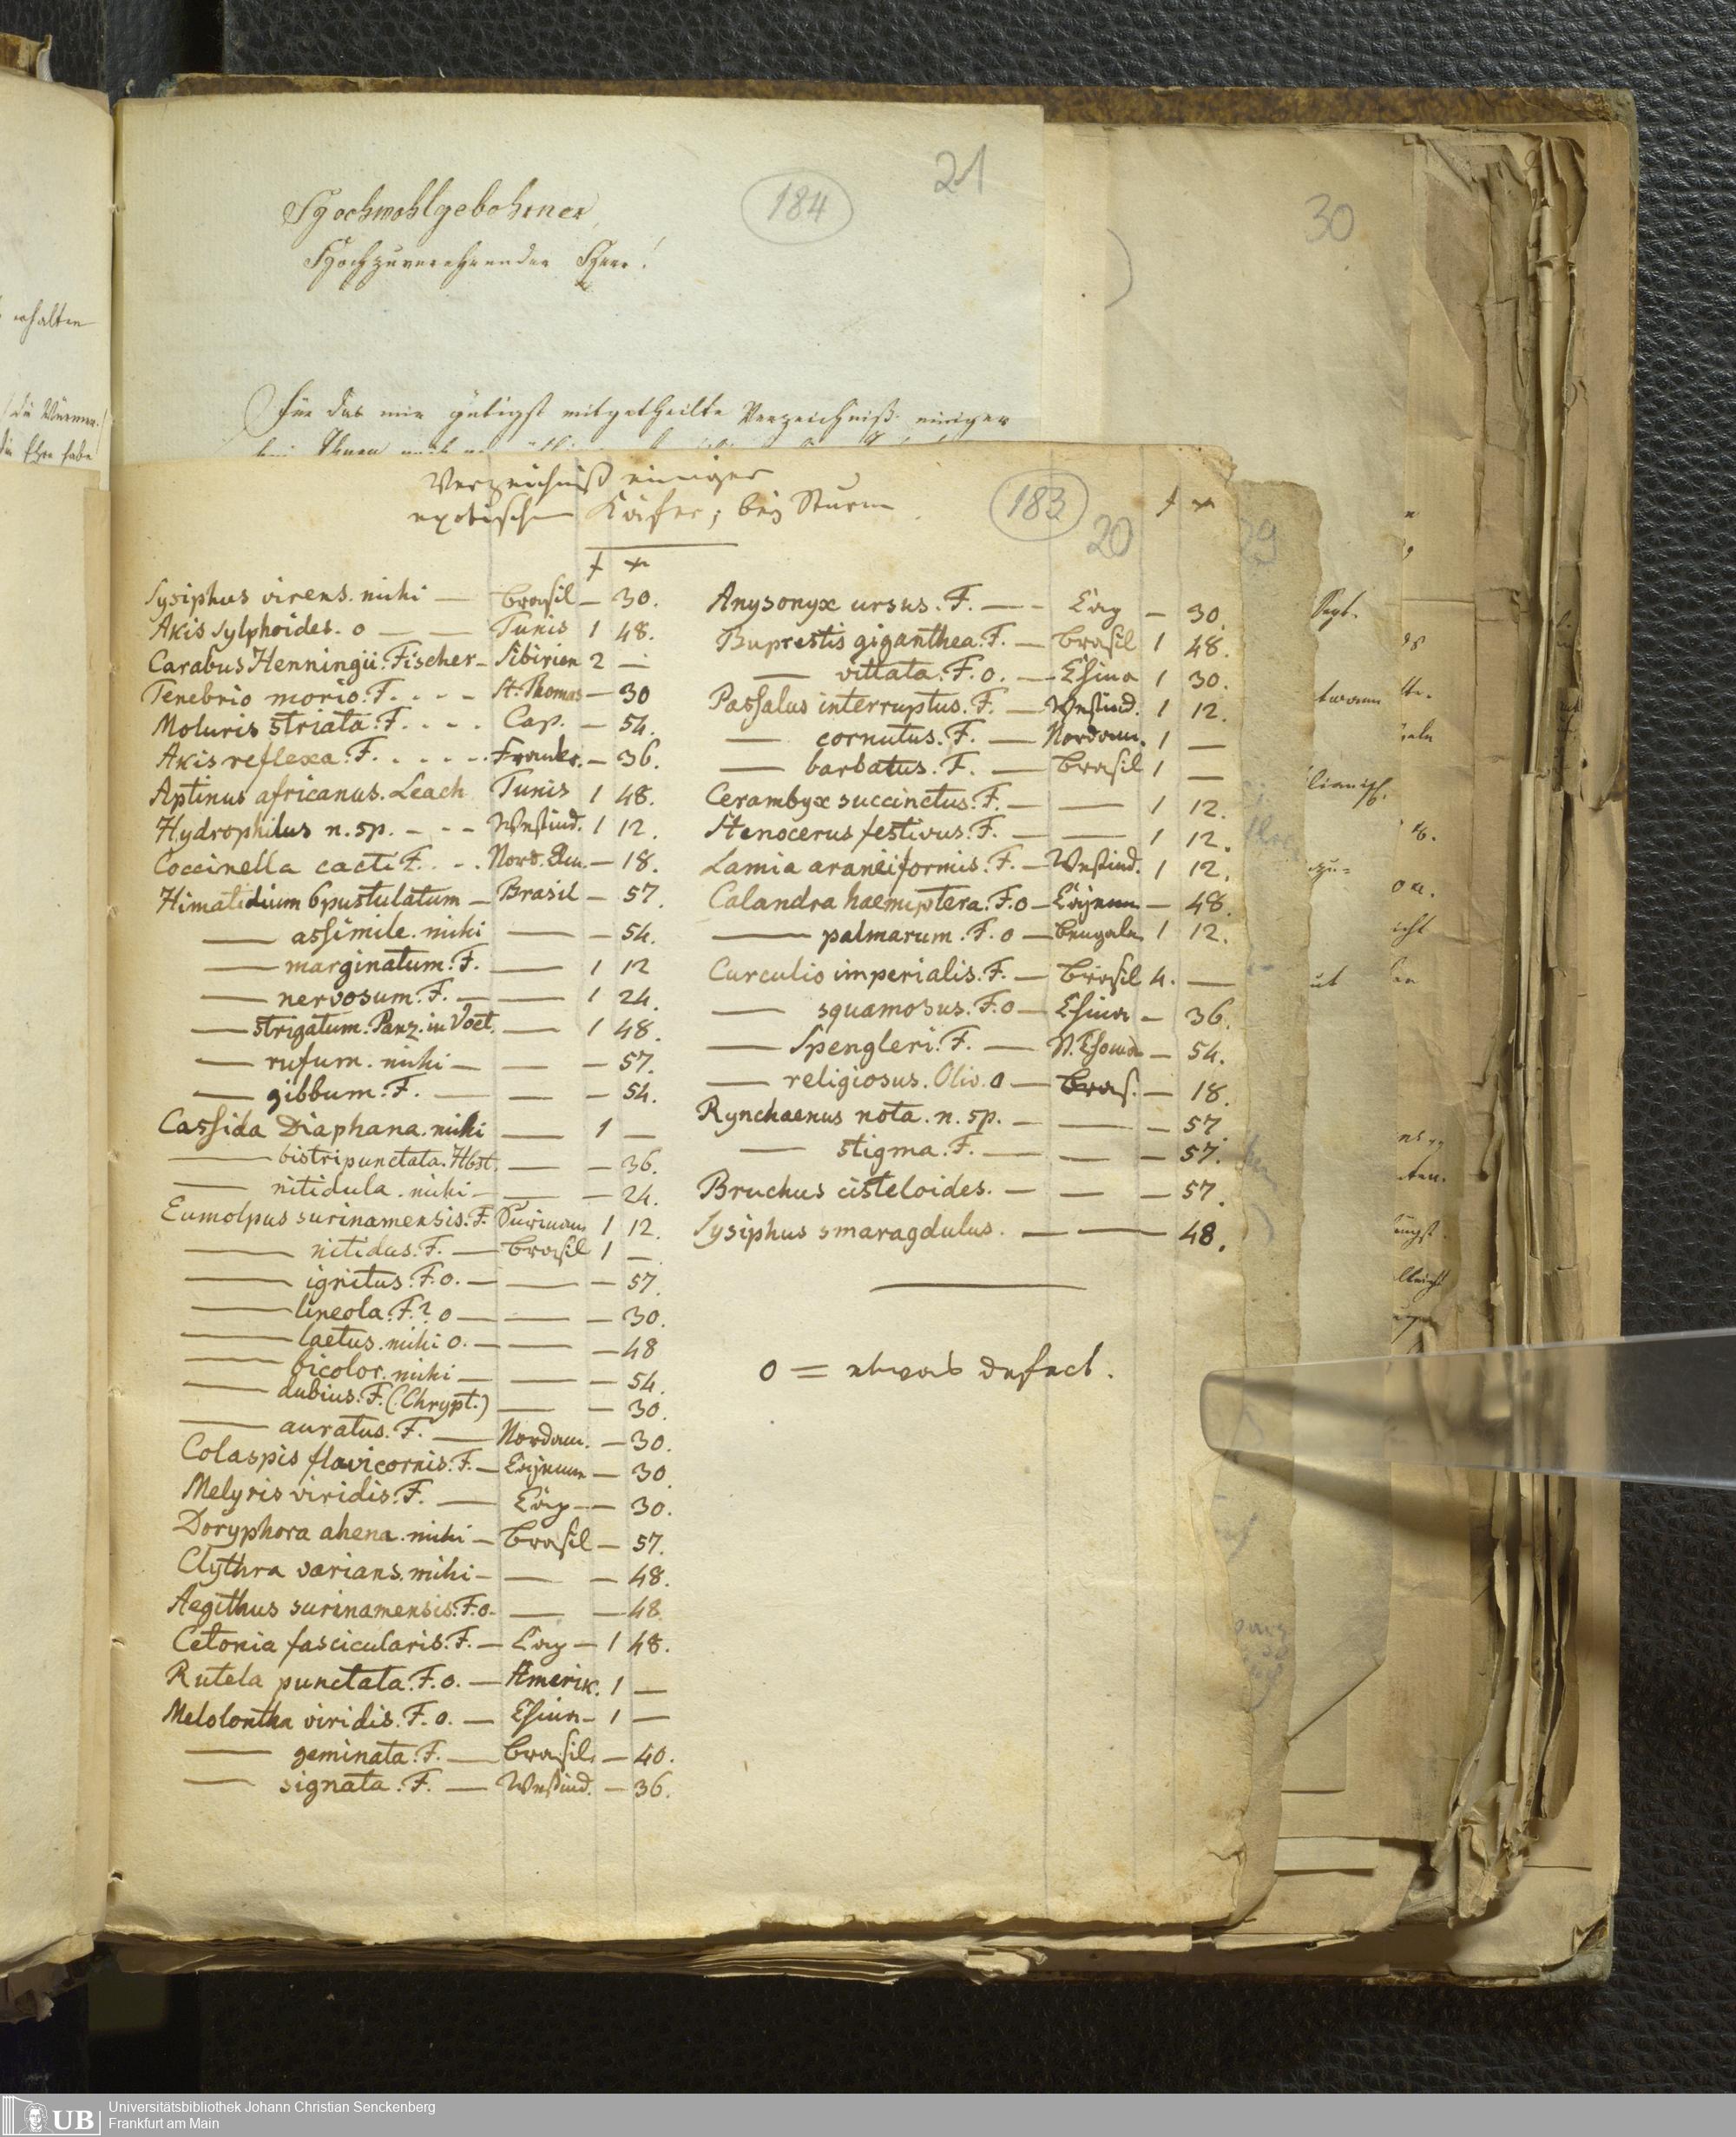 Hochwohlgebohrner,
Hochzuverehrender Herr!
184
21
30
Für das mir gütigst mitgetheilte Verzeichniß einiger
erhalten
die Würmer
die Ehre habe
Verzeichniß einiger
exotischen Käfer; bey Sturm.
183
20
29
f x
Sysiphus virens. mihi — Brasil — 30.
Akis sylphoides. o — — Tunis 1 48.
Carabus Henningii. Fischer - Sibirien 2 —
Tenebrio morio. F. . - - St. Thomas — 30
Moluris striata. F. . - . Cap. — 54.
Akis reflexa. F. . . . - . Frankr. — 36.
Aptinus africanus. Leach Tunis 1 48.
Hydrophilus n. sp. - - - Westind. 1 12.
Coccinella cacti F. . - . Nord. Am. — 18.
Himatidium 6pustulatum — Brasil — 57.
— assimile. mihi — — 54.
— marginatum. F. — 1 12
— nervosum. F. — — 1 24.
— strigatum. Panz. in Voet. — 1 48.
— rufum. mihi — — — 57.
— gibbum. F. — — — 54.
Cassida Diaphana. mihi — 1 —
— bistripunctata. Hbst. — — 36.
— nitidula. mihi — — — 24.
Eumolpus surinamensis. F. Surinam 1 12.
— nitidus. F. — Brasil 1 —
— ignitus. F. o. — — — 57.
— lineola. F.? o — — — 30.
— laetus. mihi o. — — — 48
— bicolor. mihi — — — 54.
— dubius. F. (Chrypt.) — — 30.
— auratus. F. — Nordam. — 30.
Colaspis flavicornis. F. — Cajenn — 30
Melyris viridis. F. — Cap — — 30.
Doryphora ahena. mihi — Brasil — 57.
Clythra varians. mihi — — — 48.
Aegithus surinamensis. F. o. — — 48.
Cetonia fascicularis. F. — Cap — 1 48.
Rutela punctata. F. o. — Amerik. 1 —
Melolontha viridis. F. o. — China — 1 —
— geminata. F. — Brasil. — 40.
— signata. F. — Westind. — 36.
f x
Anysonyx ursus. F. — - Cap — 30.
Buprestis giganthea. F. — Brasil 1 48.
— vittata. F. o. — China 1 30.
Passalus interruptus. F. — Westind. 1 12.
— cornutus. F. — Nordam. 1 —
— barbatus. F. — Brasil 1 —
Cerambyx succinctus. F. — — 1 12.
Stenocerus festivus. F. — — 1 12.
Lamia araneiformis. F. — Westind. 1 12.
Calandra haemiptera. F. o — Cajenn — 48.
— palmarum. F. o — Bengalen 1 12.
Curculio imperialis. F. — Brasil 4. —
— squamosus. F. o — China — 36.
— Spengleri. F. — — 54.
— religiosus. Oliv. o — Bras. — 18.
Rynchaenus nota. n. sp. — — — 57
— stigma. F. — — — 57.
Bruchus cisteloides. — — — 57.
Sysiphus smaragdulus. — — 48.
o = etwas defect.
Sept.
UB
Universitätsbibliothek Johann Christian Senckenberg
Frankfurt am Main